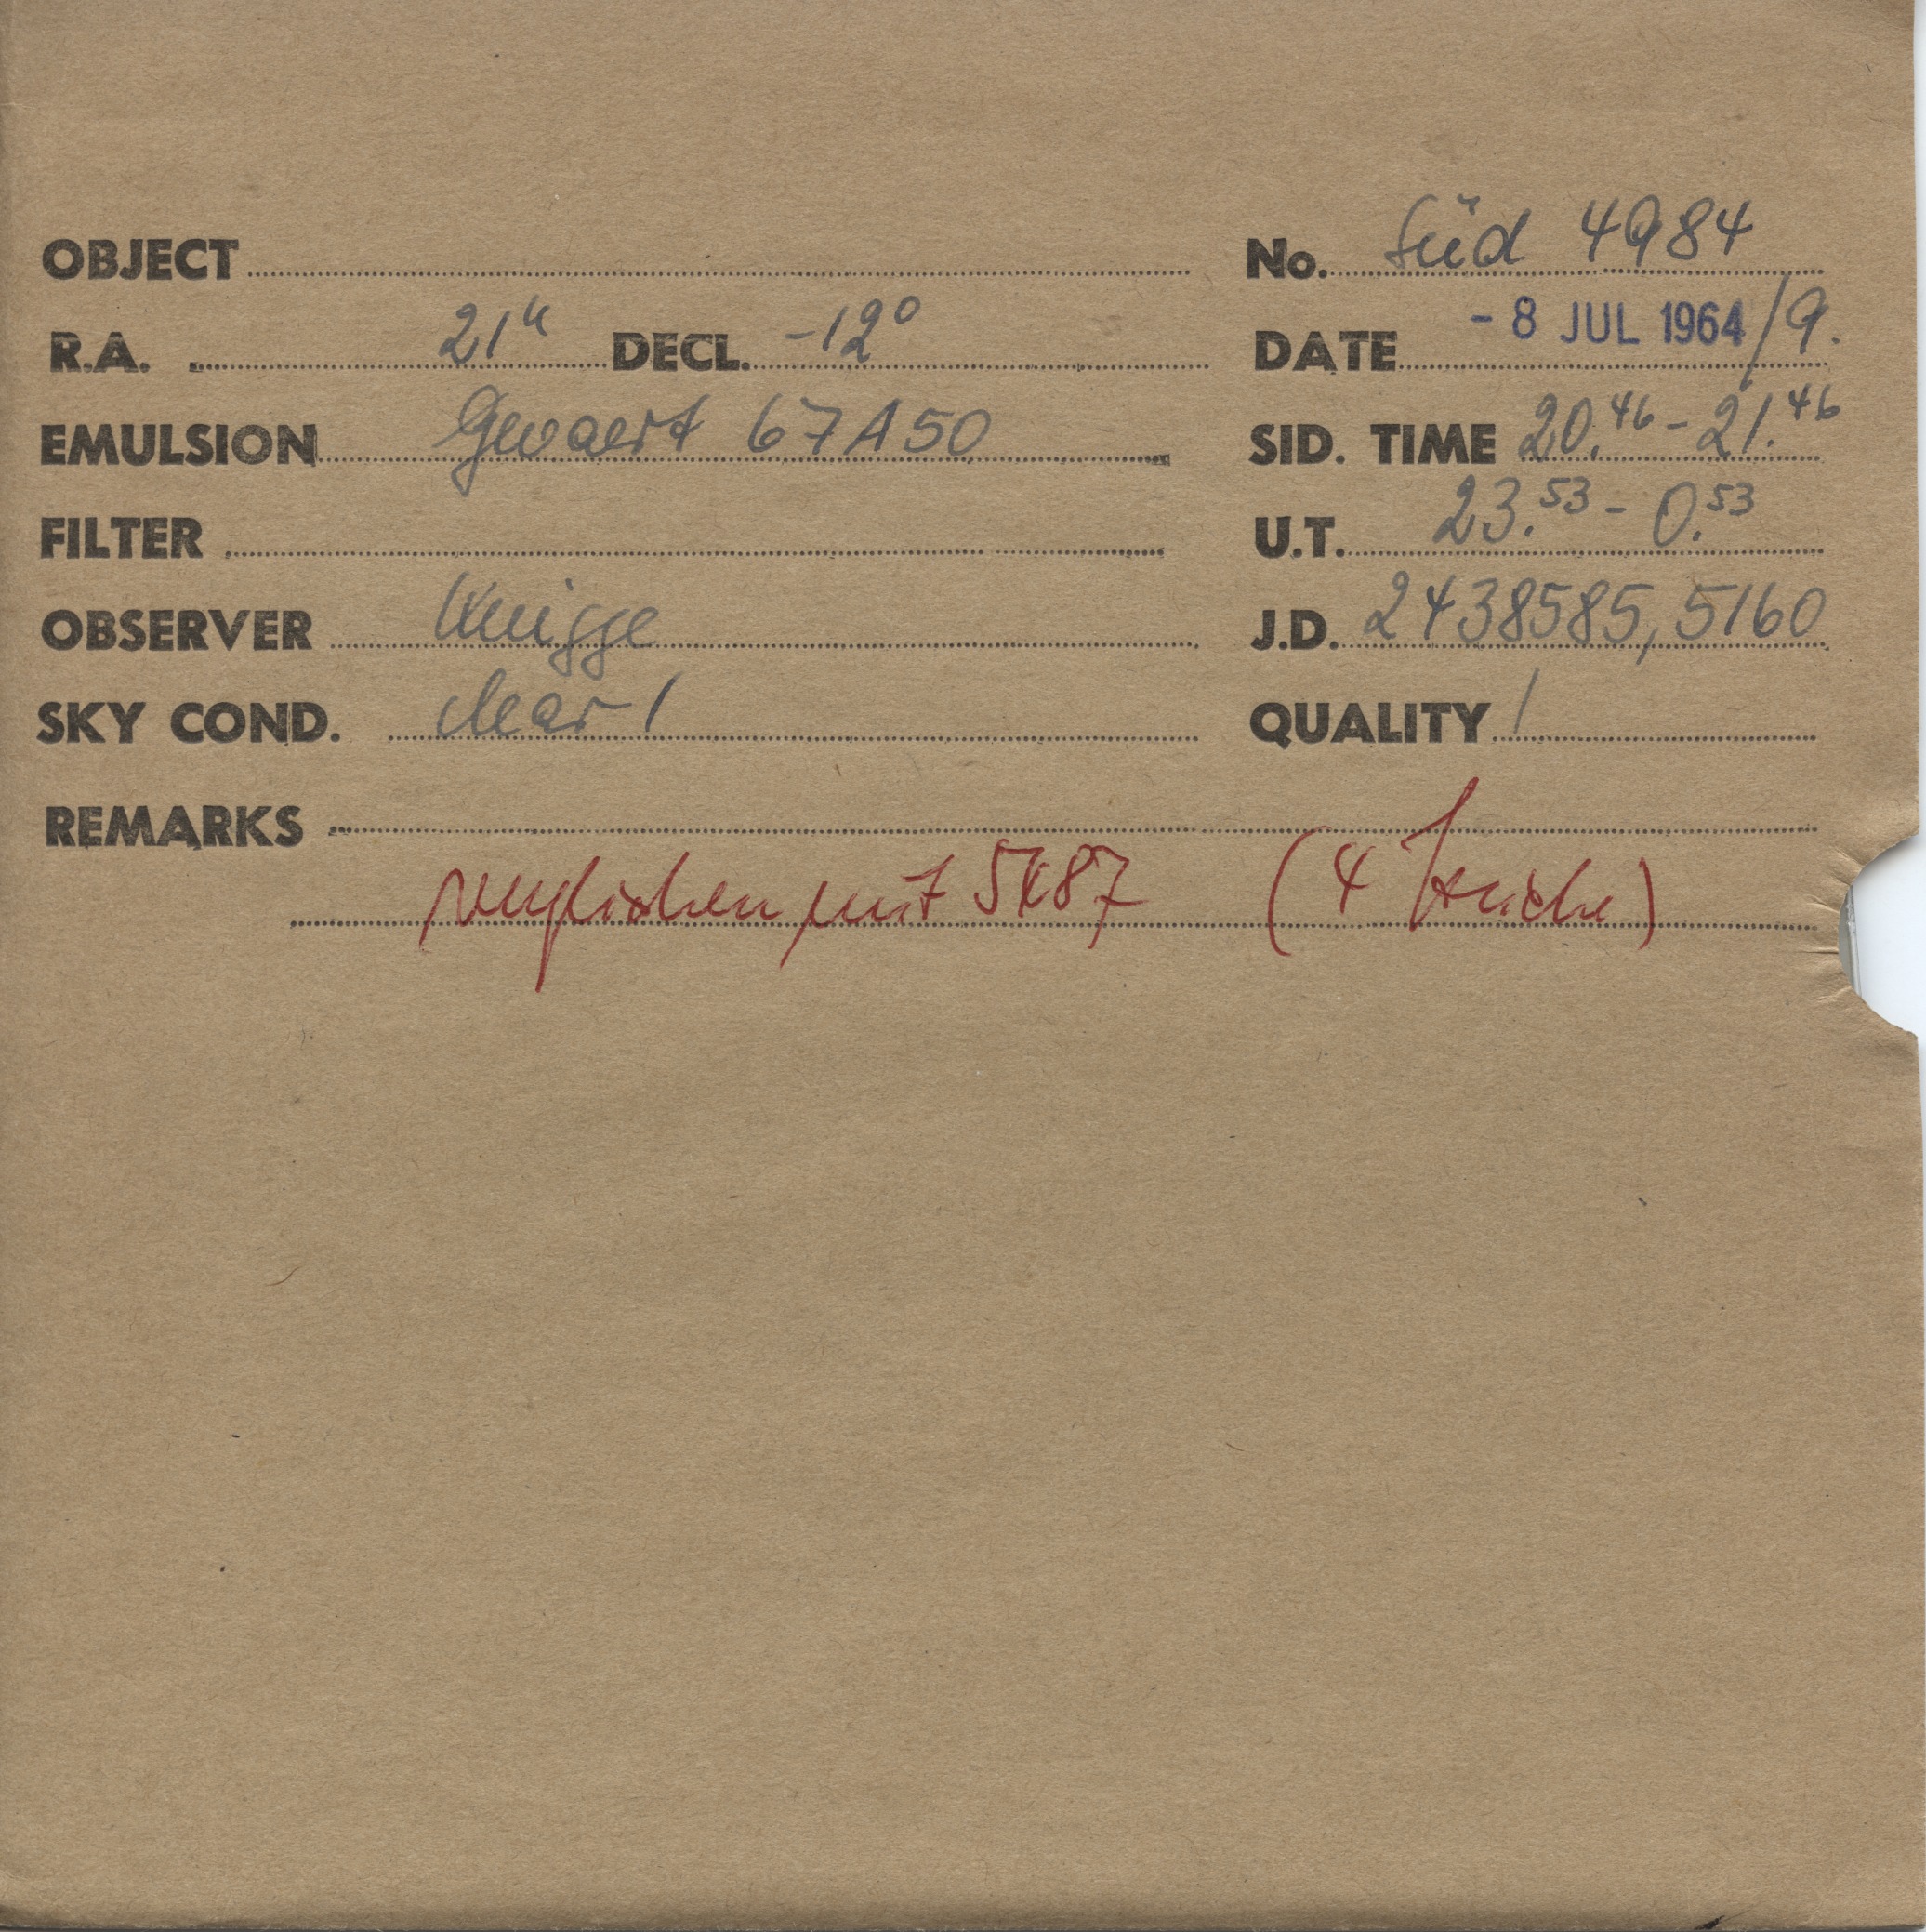 OBJECT No. Süd 4984
R.A. 21h DECL. -12° DATE - 8 JUL 1964/9.
EMULSION Gevaert 67A50 SID. TIME 20.46 - 21.46
FILTER U.T. 23.53 - 0.53
OBSERVER Knigge J.D. 2438585,5160
SKY COND. clear 1 QUALITY 1
REMARKS
verglichen mit (4 Striche)